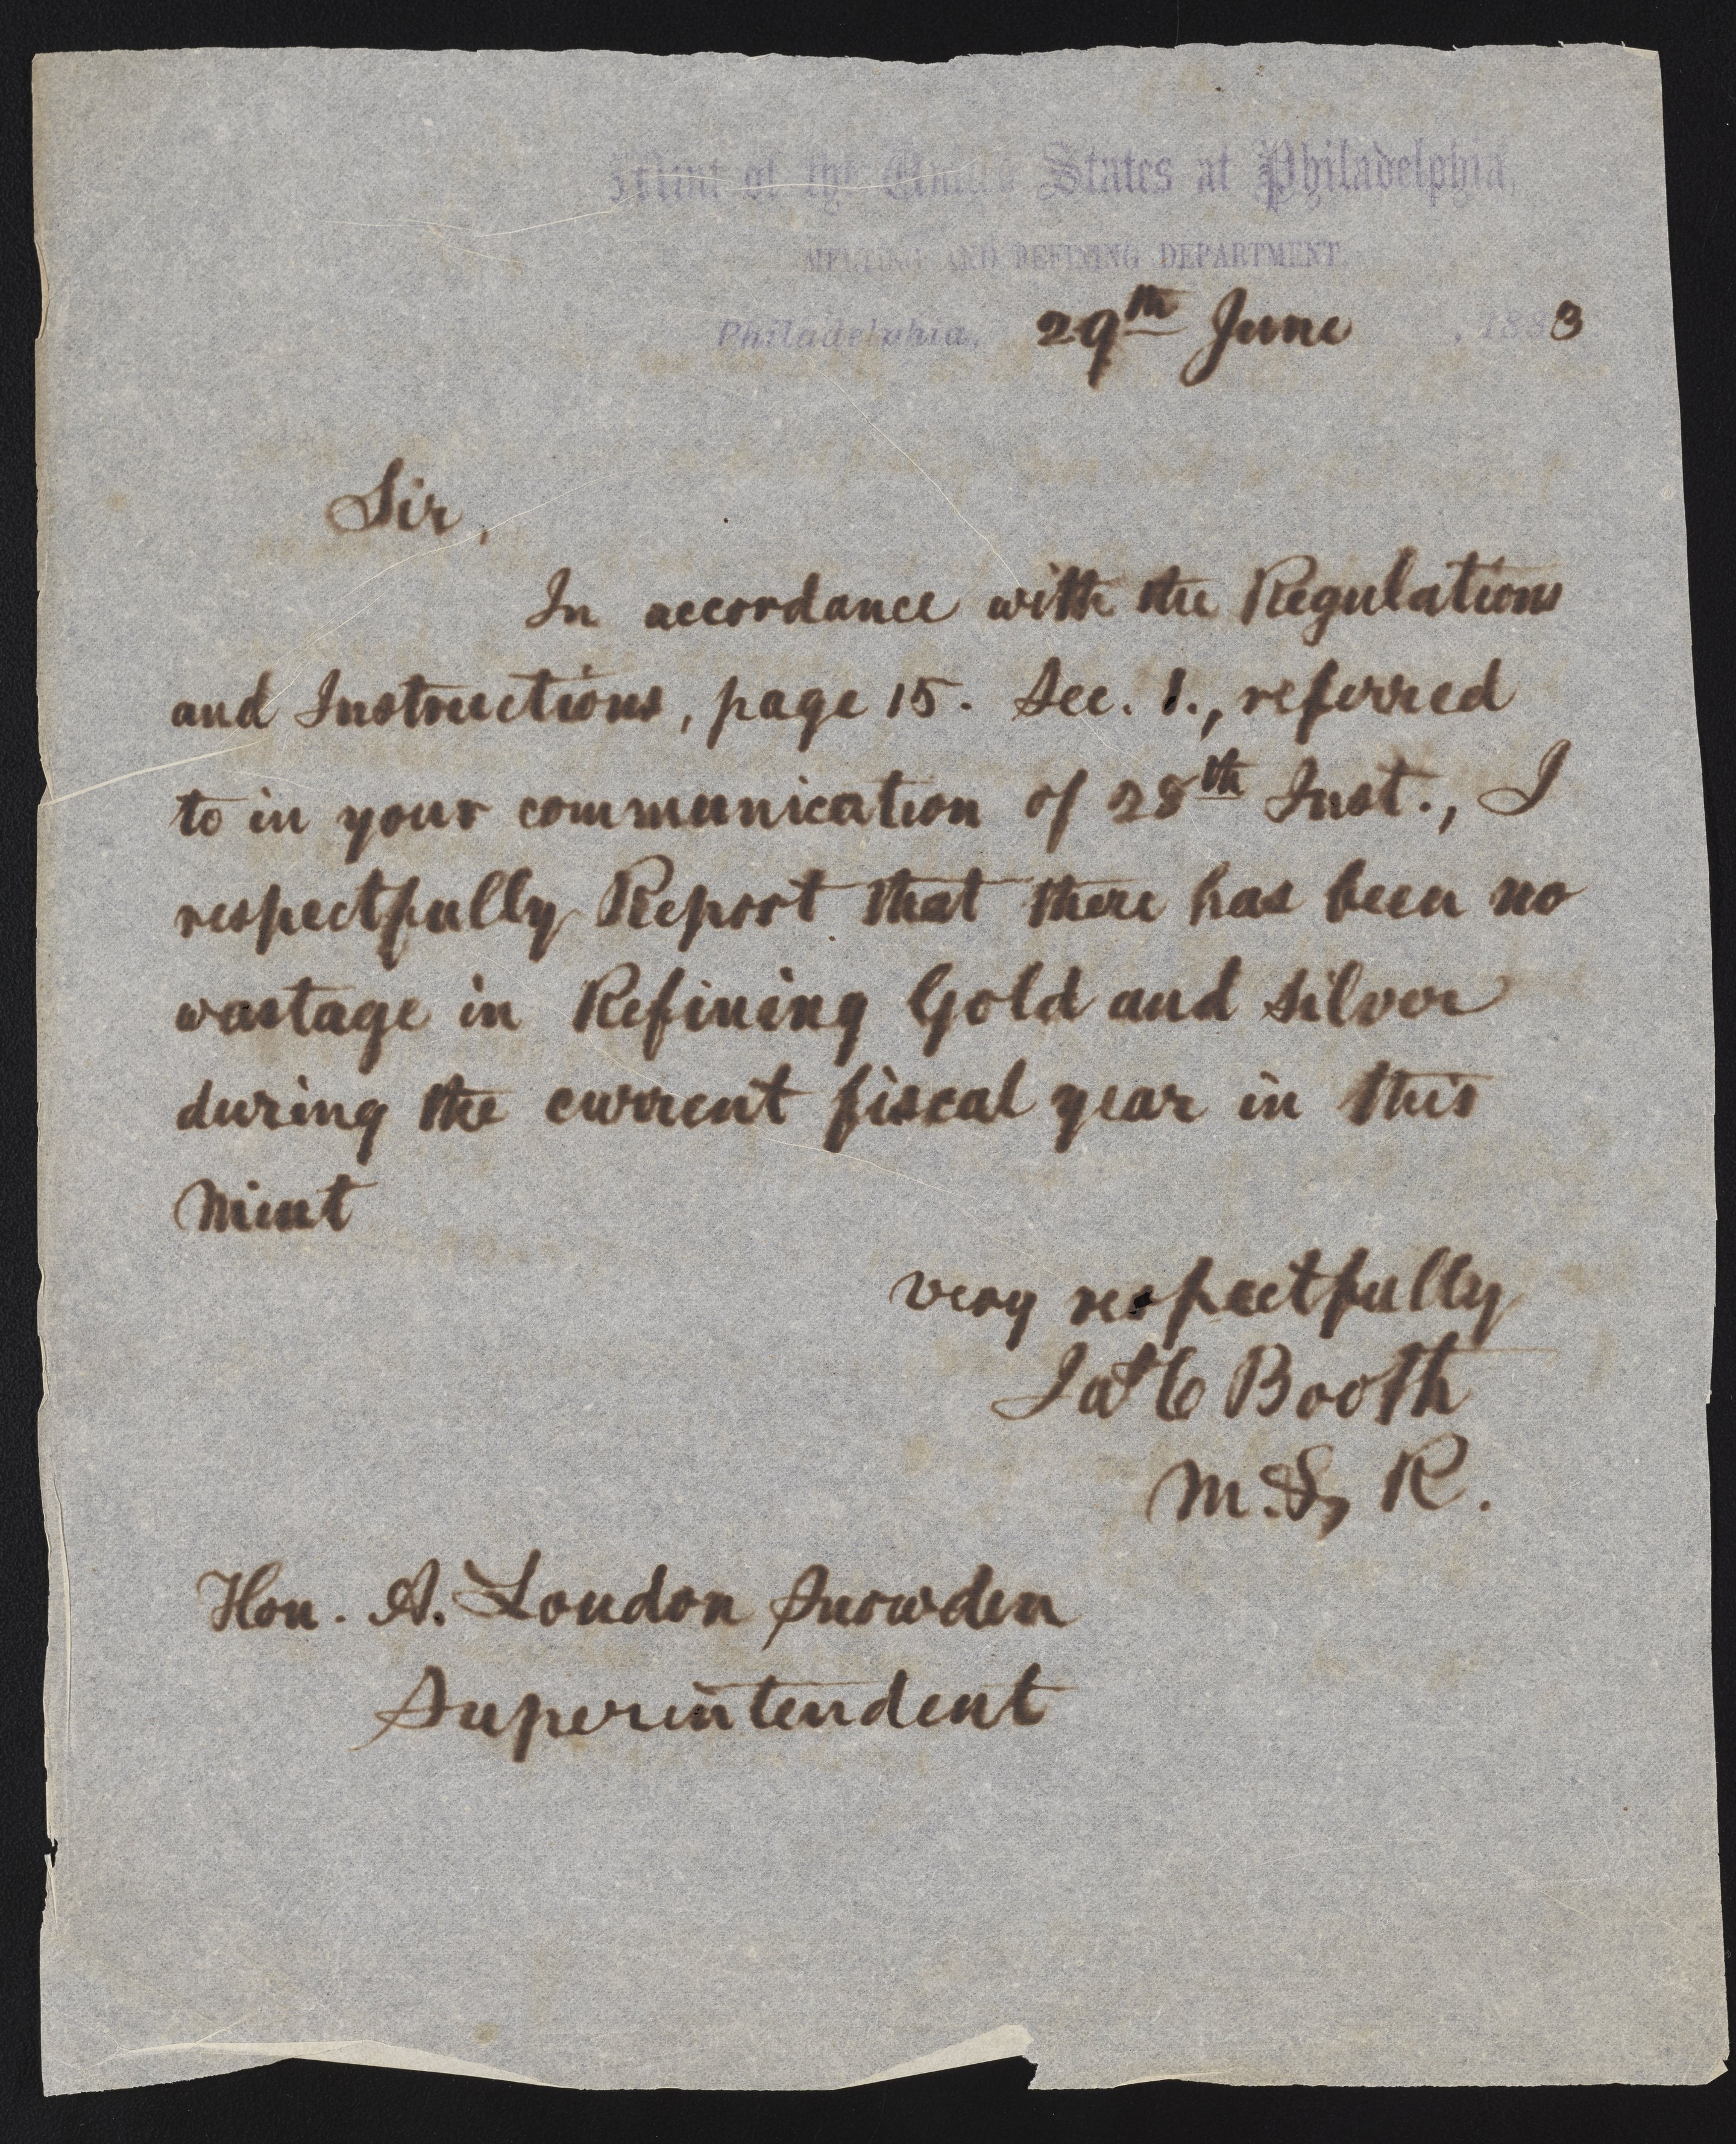 Mint of the United States at Philadelphia,
MELTING AND REFINING DEPARTMENT.
Philadelphia, 29th June, 1883
Sir,
In accordance with the Regulations
and Instructions, page 15. Sec. 1., referred
to in your communication of 28th Inst., I
respectfully Report that there has been no
wastage in Refining Gold and silver
during the current fiscal year in this
Mint
very respectfully
Jas C Booth
M. & R.
Hon. A. Loudon Snowden
Superintendent